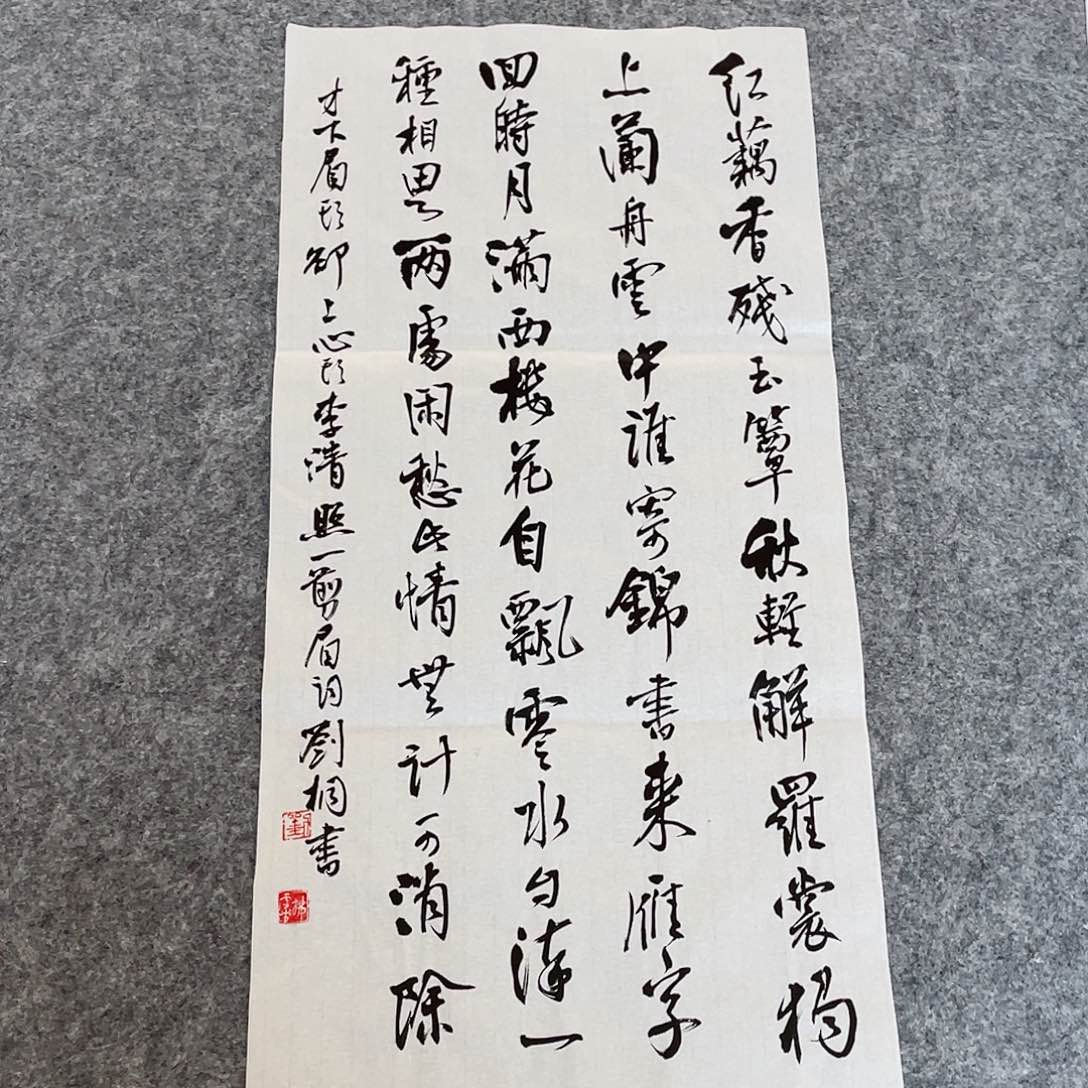 红藕香残玉簟秋軽解羅裳独
上蘭舟雲中誰寄錦書来雁字
回時月满西楼花自飄零水自流一
種相思两處闲愁此情無計可消除
才下眉头却上心头李清照一剪眉词劉桐書